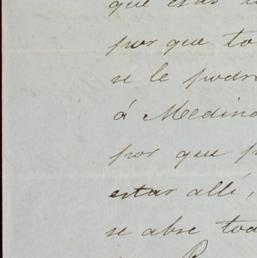 que esas
por que to
se le podr
á Medina
por que p
estar allí,
se abse tod